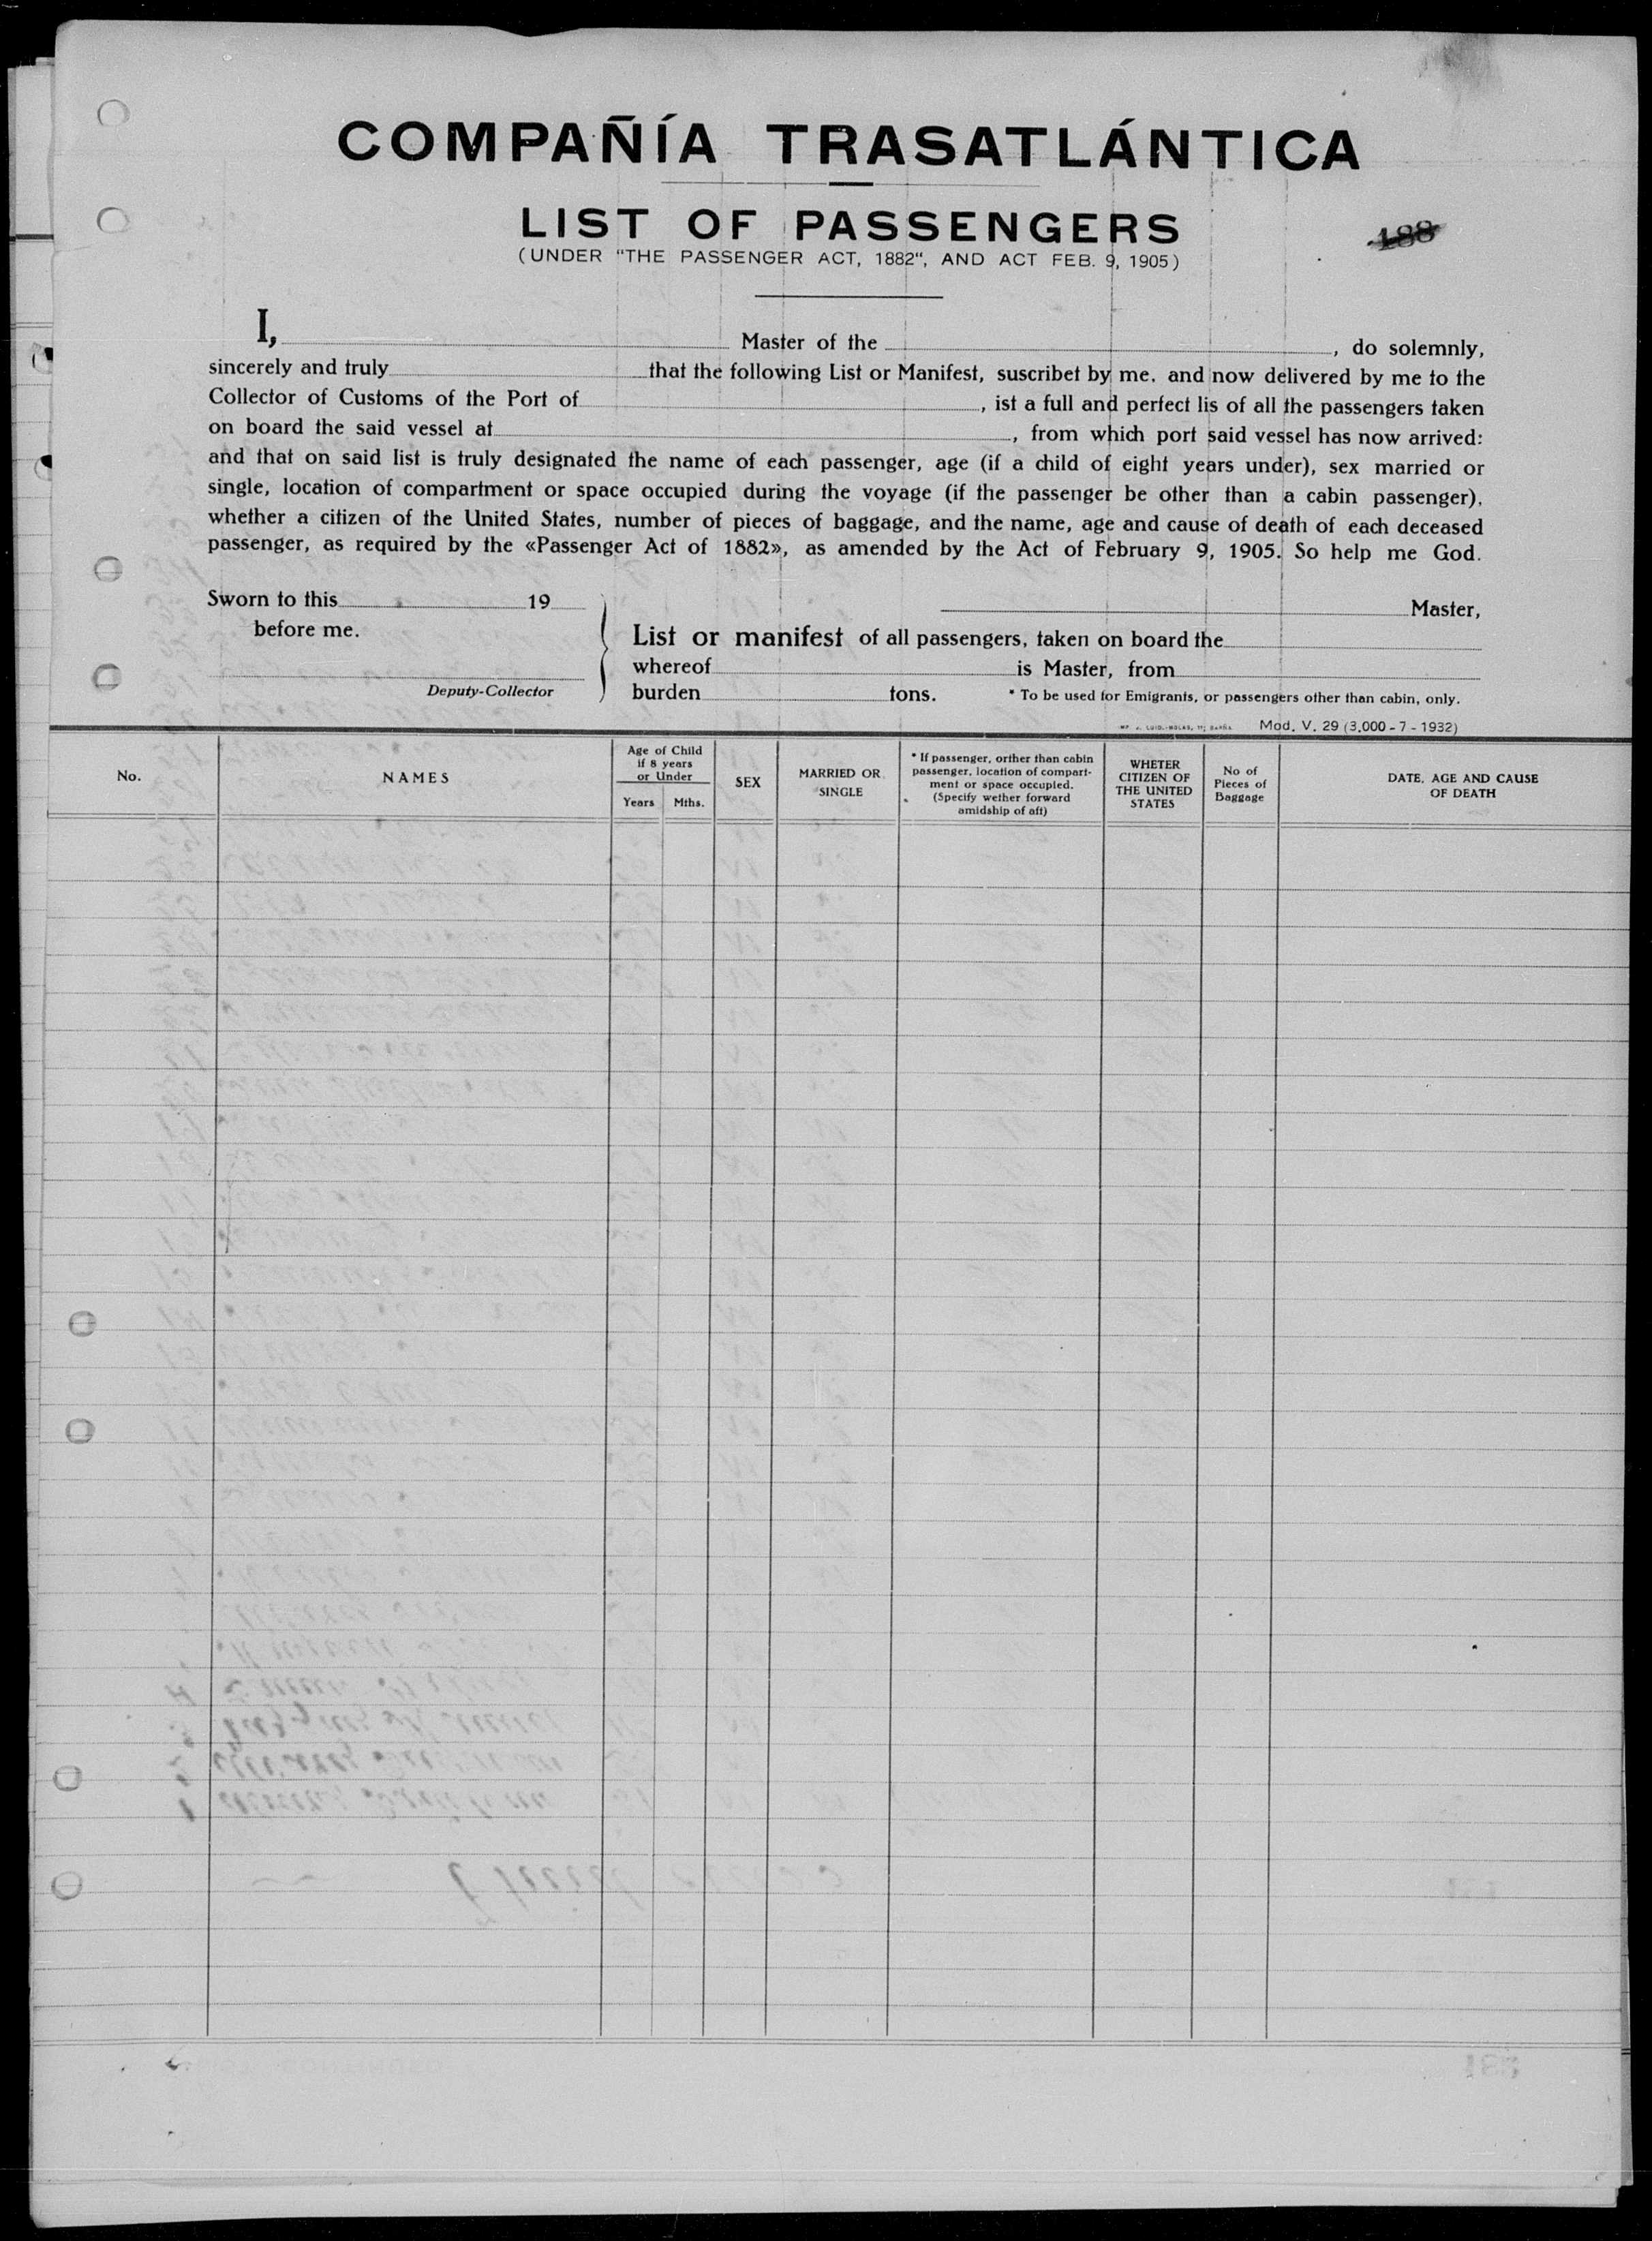 COMPAÑÍA TRASATLÁNTICA
LIST OF PASSENGERS
188
(UNDER "THE PASSENGER ACT, 1882", AND ACT FEB. 9, 1905)
I, Master of the , do solemnly,
sincerely and truly that the following List or Manifest, suscribet by me. and now delivered by me to the
Collector of Customs of the Port of , ist a full and perfect lis of all the passengers taken
on board the said vessel at , from which port said vessel has now arrived:
and that on said list is truly designated the name of each passenger, age (if a child of eight years under), sex married or
single, location of compartment or space occupied during the voyage (if the passenger be other than a cabin passenger),
whether a citizen of the United States, number of pieces of baggage, and the name, age and cause of death of each deceased
passenger, as required by the «Passenger Act of 1882», as amended by the Act of February 9, 1905. So help me God.
Sworn to this 19
before me.
Deputy-Collector
Master,
List or manifest of all passengers, taken on board the
whereof is Master, from
burden tons. * To be used for Emigrants, or passengers other than cabin, only.
Mod. V. 29 (3,000 - 7 - 1932)
No.
NAMES
Age of Child
if 8 years
or Under
Years Mths.
SEX
MARRIED OR
SINGLE
* If passenger, orther than cabin
passenger, location of compart-
ment or space occupied.
(Specify wether forward
amidship of aft)
WHETER
CITIZEN OF
THE UNITED
STATES
No of
Pieces of
Baggage
DATE, AGE AND CAUSE
OF DEATH